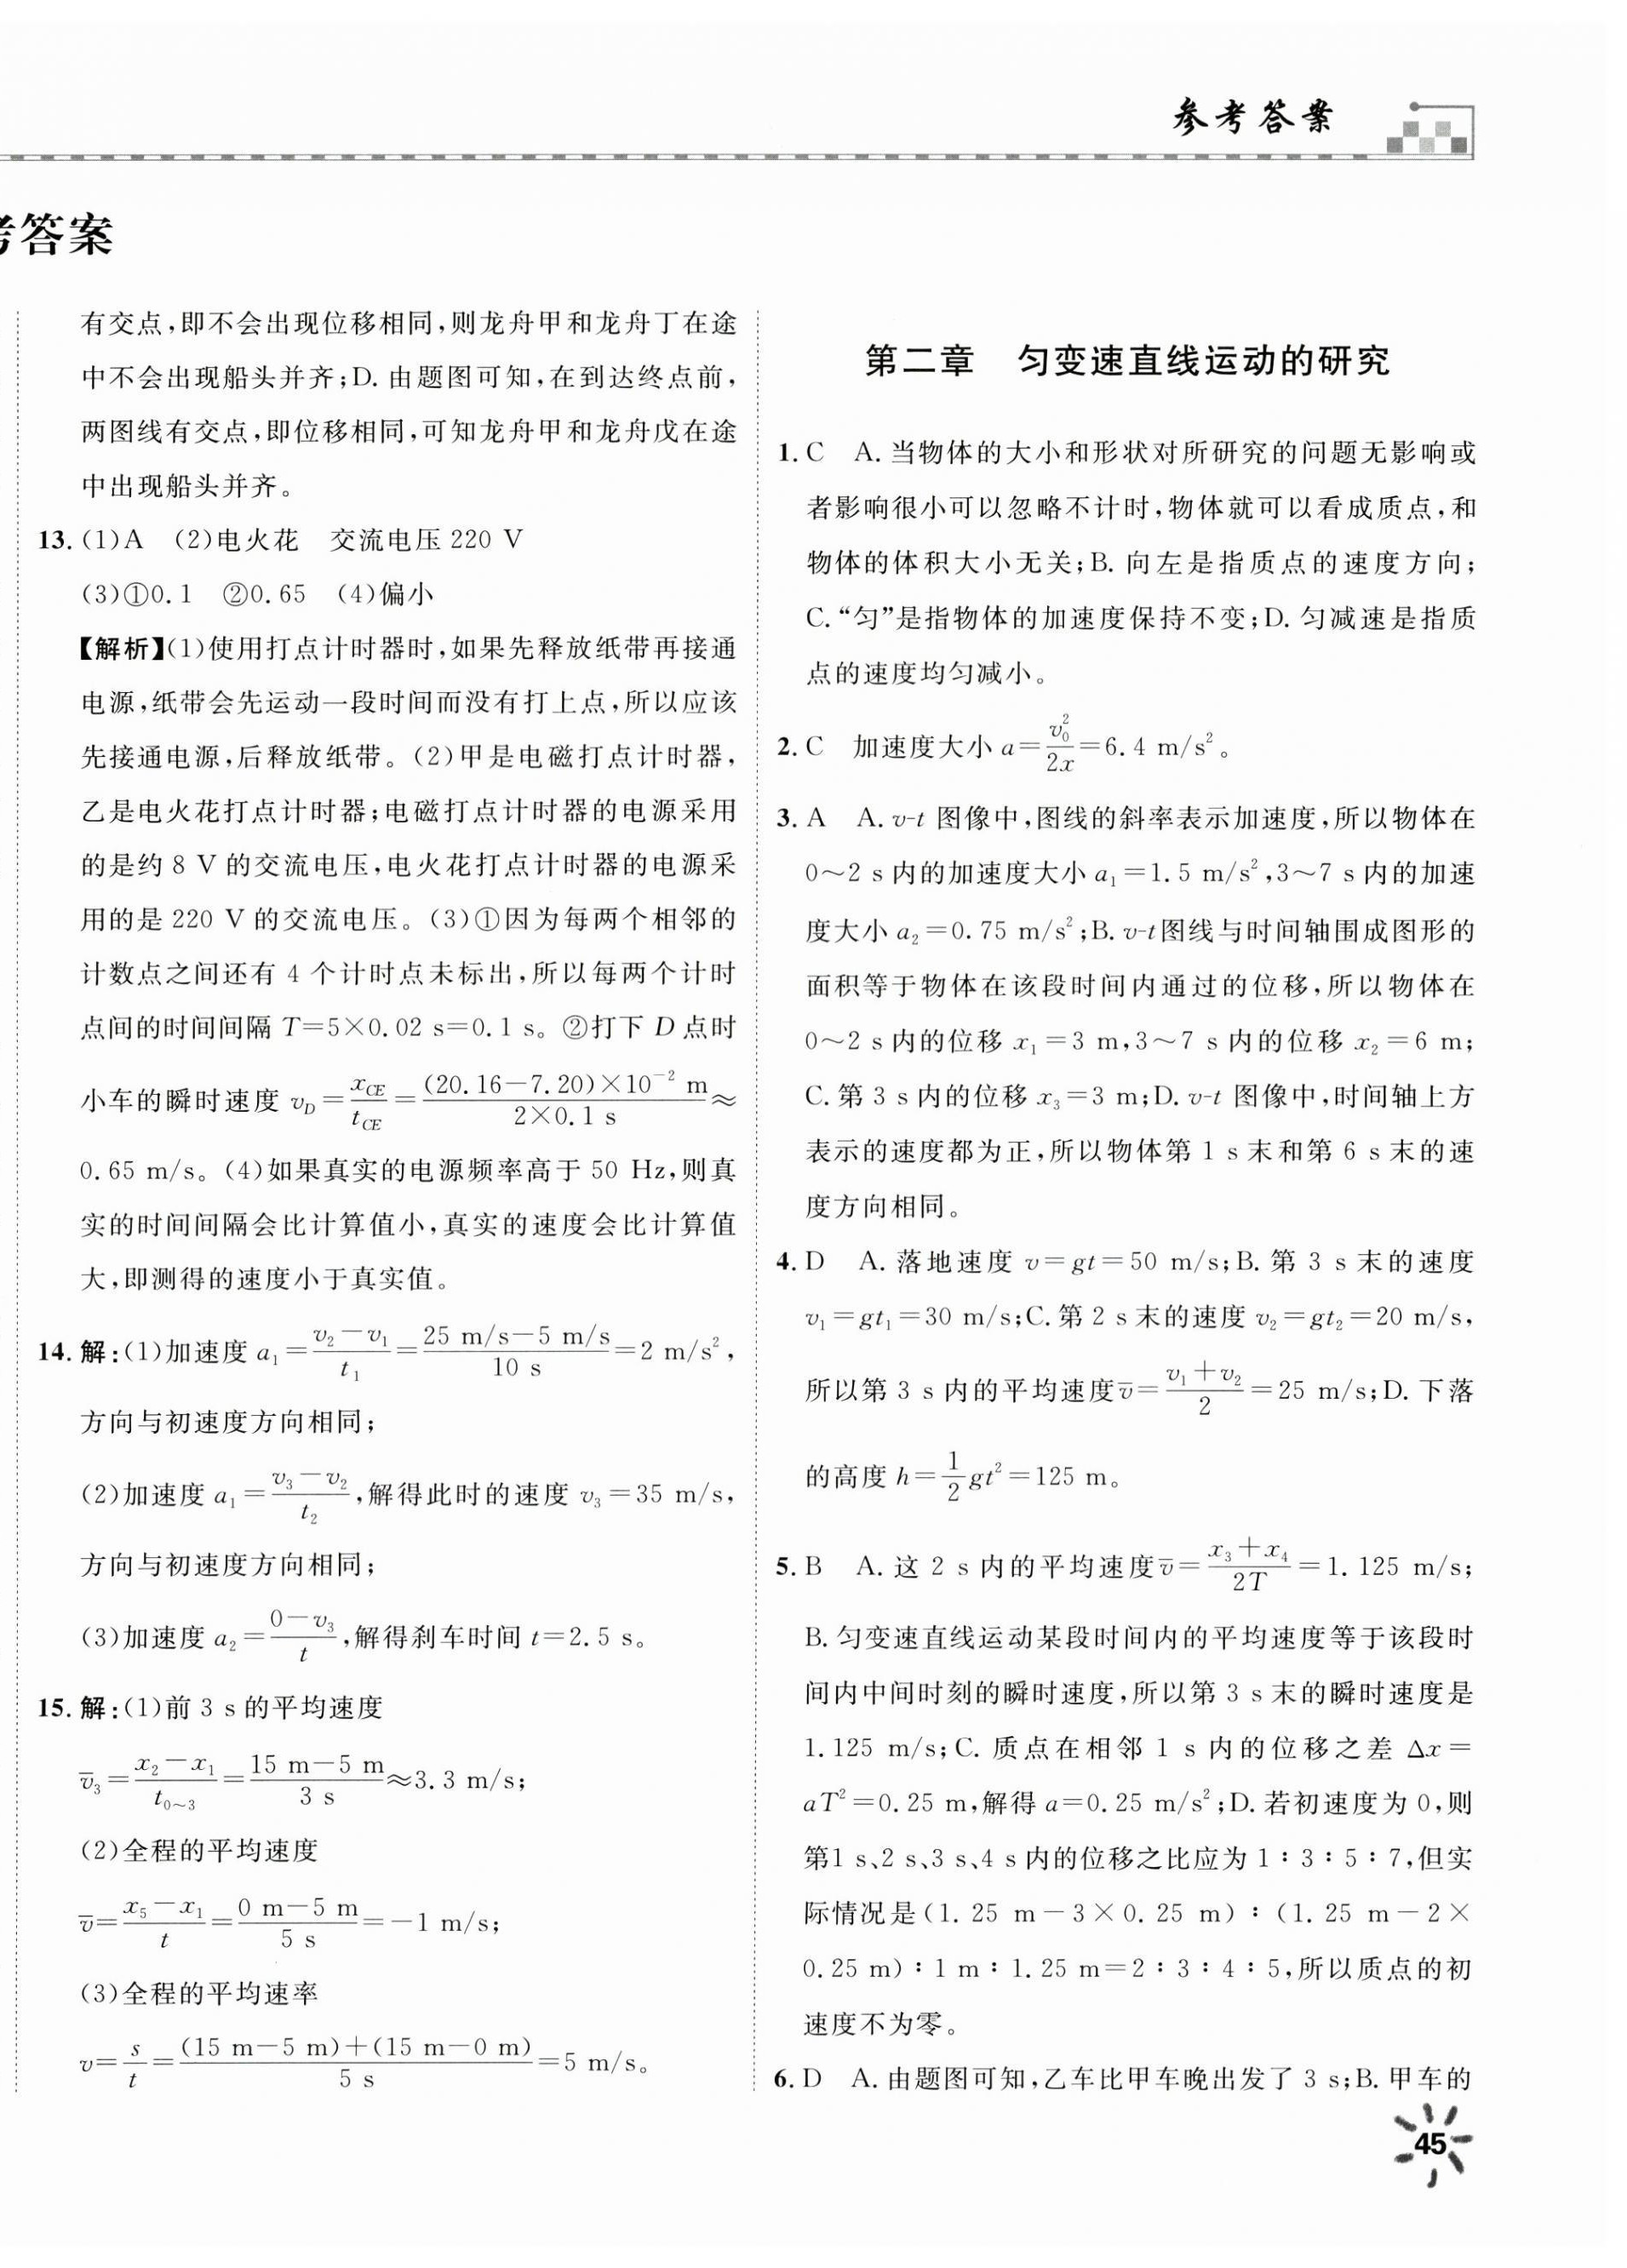 参考答案
考答案
有交点,即不会出现位移相同,则龙舟甲和龙舟丁在途
中不会出现船头并齐;D. 由题图可知,在到达终点前,
两图线有交点,即位移相同,可知龙舟甲和龙舟戊在途
中出现船头并齐。
13. (1)A (2)电火花 交流电压 220 V
(3)①0.1 ②0.65 (4)偏小
【解析】(1)使用打点计时器时,如果先释放纸带再接通
电源,纸带会先运动一段时间而没有打上点,所以应该
先接通电源,后释放纸带。(2)甲是电磁打点计时器,
乙是电火花打点计时器;电磁打点计时器的电源采用
的是约 8 V 的交流电压,电火花打点计时器的电源采
用的是 220 V 的交流电压。(3)①因为每两个相邻的
计数点之间还有 4 个计时点未标出,所以每两个计时
点间的时间间隔 T=5×0.02 s=0.1 s。②打下 D 点时
小车的瞬时速度 v_D=x_CE/t_CE=(20.16-7.20)×10⁻² m/(2×0.1 s)≈
0.65 m/s。(4)如果真实的电源频率高于 50 Hz,则真
实的时间间隔会比计算值小,真实的速度会比计算值
大,即测得的速度小于真实值。
14. 解:(1)加速度 a₁=(v₂-v₁)/t₁=(25 m/s-5 m/s)/(10 s)=2 m/s²,
方向与初速度方向相同;
(2)加速度 a₁=(v₃-v₂)/t₂,解得此时的速度 v₃=35 m/s,
方向与初速度方向相同;
(3)加速度 a₂=(0-v₃)/t,解得刹车时间 t=2.5 s。
15. 解:(1)前 3 s 的平均速度
v̄₃=(x₂-x₁)/t₀～₃=(15 m-5 m)/(3 s)≈3.3 m/s;
(2)全程的平均速度
v̄=(x₅-x₁)/t=(0 m-5 m)/(5 s)=-1 m/s;
(3)全程的平均速率
v=s/t=((15 m-5 m)+(15 m-0 m))/(5 s)=5 m/s。
第二章 匀变速直线运动的研究
1. C A. 当物体的大小和形状对所研究的问题无影响或
者影响很小可以忽略不计时,物体就可以看成质点,和
物体的体积大小无关;B. 向左是指质点的速度方向;
C.“匀”是指物体的加速度保持不变;D. 匀减速是指质
点的速度均匀减小。
2. C 加速度大小 a=v₀²/(2x)=6.4 m/s²。
3. A A. v-t 图像中,图线的斜率表示加速度,所以物体在
0～2 s 内的加速度大小 a₁=1.5 m/s²,3～7 s 内的加速
度大小 a₂=0.75 m/s²;B. v-t图线与时间轴围成图形的
面积等于物体在该段时间内通过的位移,所以物体在
0～2 s 内的位移 x₁=3 m,3～7 s 内的位移 x₂=6 m;
C. 第 3 s 内的位移 x₃=3 m;D. v-t 图像中,时间轴上方
表示的速度都为正,所以物体第 1 s 末和第 6 s 末的速
度方向相同。
4. D A. 落地速度 v=gt=50 m/s;B. 第 3 s 末的速度
v₁=gt₁=30 m/s;C. 第 2 s 末的速度 v₂=gt₂=20 m/s,
所以第 3 s 内的平均速度v̄=(v₁+v₂)/2=25 m/s;D. 下落
的高度 h=1/2 gt²=125 m。
5. B A. 这 2 s 内的平均速度v̄=(x₃+x₄)/(2T)=1.125 m/s;
B. 匀变速直线运动某段时间内的平均速度等于该段时
间内中间时刻的瞬时速度,所以第 3 s 末的瞬时速度是
1.125 m/s;C. 质点在相邻 1 s 内的位移之差 Δx=
aT²=0.25 m,解得 a=0.25 m/s²;D. 若初速度为 0,则
第1 s、2 s、3 s、4 s 内的位移之比应为 1∶3∶5∶7,但实
际情况是(1.25 m-3×0.25 m)∶(1.25 m-2×
0.25 m)∶1 m∶1.25 m=2∶3∶4∶5,所以质点的初
速度不为零。
6. D A. 由题图可知,乙车比甲车晚出发了 3 s;B. 甲车的
45